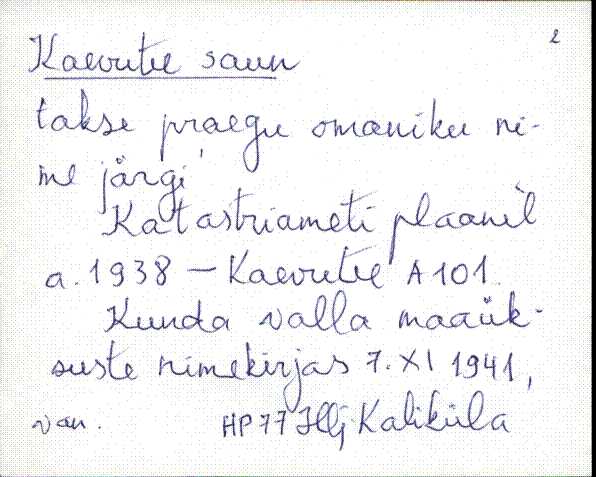 2
Kaevutee saun
takse praegu omaniku ni-
me järgi
Katastriameti plaanil
a. 1938 — Kaevutee A 101.
Kunda valla maaük-
suste nimekirjas 7. XI 1941,
van. HP 77 Hlj Kaliküla